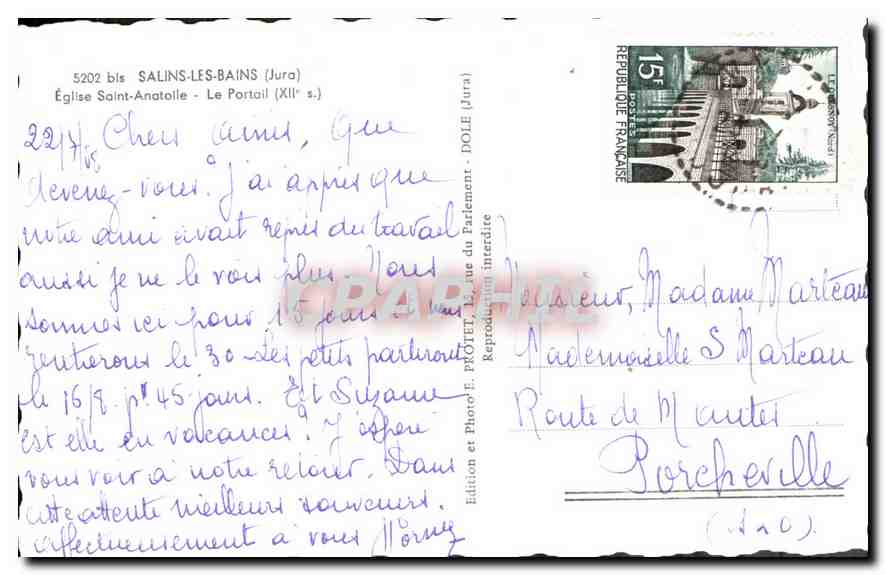 5202 bis SALINS-LES-BAINS (Jura)
Église Saint-Anatolle - Le Portail (XIIe s.)
22/7/ Chers amis, que
devenez-vous? J'ai appris que
notre ami avait repris du travail
aussi je ne le vois plus. Nous
sommes ici pour 15 jours et nous
rentrerons le 30 - Les petits partiront
le 16/8 pr 45 jours. Et Suzanne
est elle en vacances? J'espère
vous voir à notre retour. Dans
cette attente meilleurs souvenirs.
affectueusement à vous
Edition et Photo E. PROTET, rue du Parlement - DOLE (Jura)
Reproduction interdite
15F
POSTES
REPUBLIQUE FRANÇAISE
LE QUESNOY (Nord)
CPAPHIL
Monsieur, Madame Marteau
Mademoiselle S Marteau
Route de Mantes
Porcheville
(S & O).